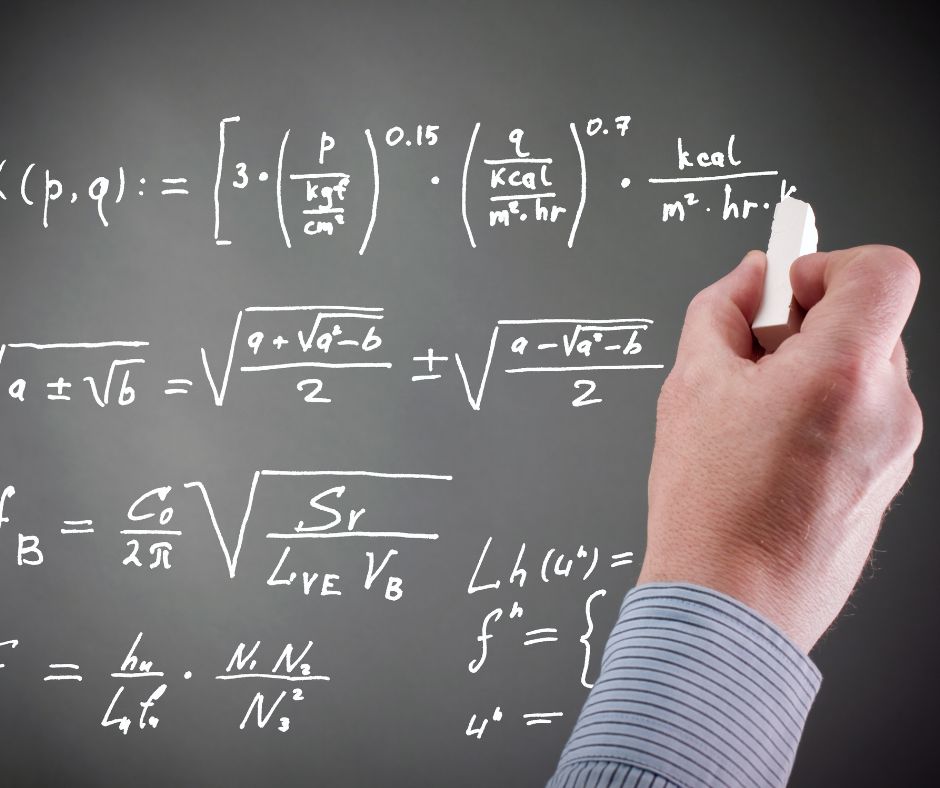 (p,q) := [3 · (p / (kgf / cm²))^0.15 · (q / (kcal / (m² · hr)))^0.7 · kcal / (m² · hr · k
√(a ± √b) = √((a + √(a² − b)) / 2) ± √((a − √(a² − b)) / 2)
f_B = C₀ / 2π √(Sr / (L_VE V_B))
Lh (4^h) =
f^h = {
= h₄ / (L₄ f₄) · N₁ N₂ / N₃²
4^h =